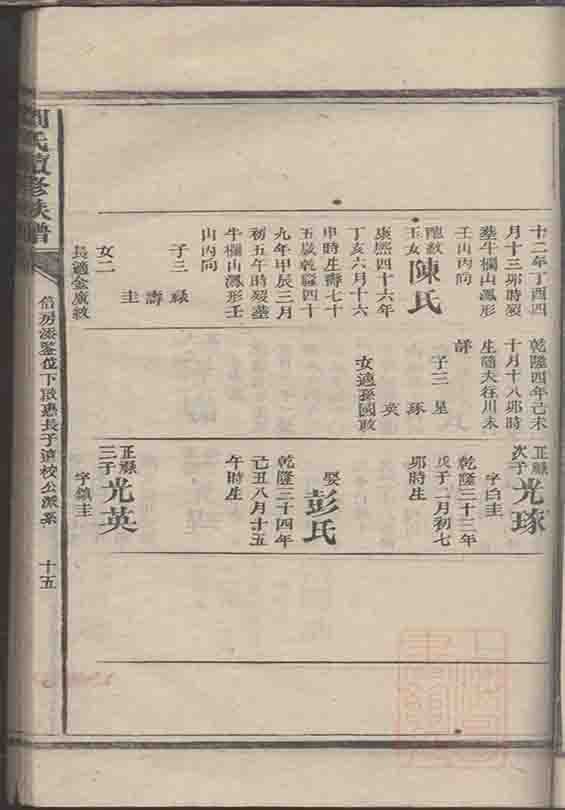 十二年丁酉四
月十三卯時殁
葬牛欄山鳳形
壬山丙向
陳氏
玉女
康熙四十六年
丁亥六月十六
申時生壽七十
五歲乾隆四十
九年甲辰三月
初五午時殁葬
牛欄山鳳形壬
山丙向
子三 祿
壽
圭
女二
長適金廣紋
乾隆四年己未
十月十八卯時
生隨夫往川未
詳
子三 星
琢
英
女適孫國政
正祿次子
光琢
字白圭
乾隆三十三年
戊子二月初七
卯時生
娶彭氏
乾隆三十四年
己丑八月十五
午時生
正祿三子
光英
字鎮圭
劉氏修族譜
十五